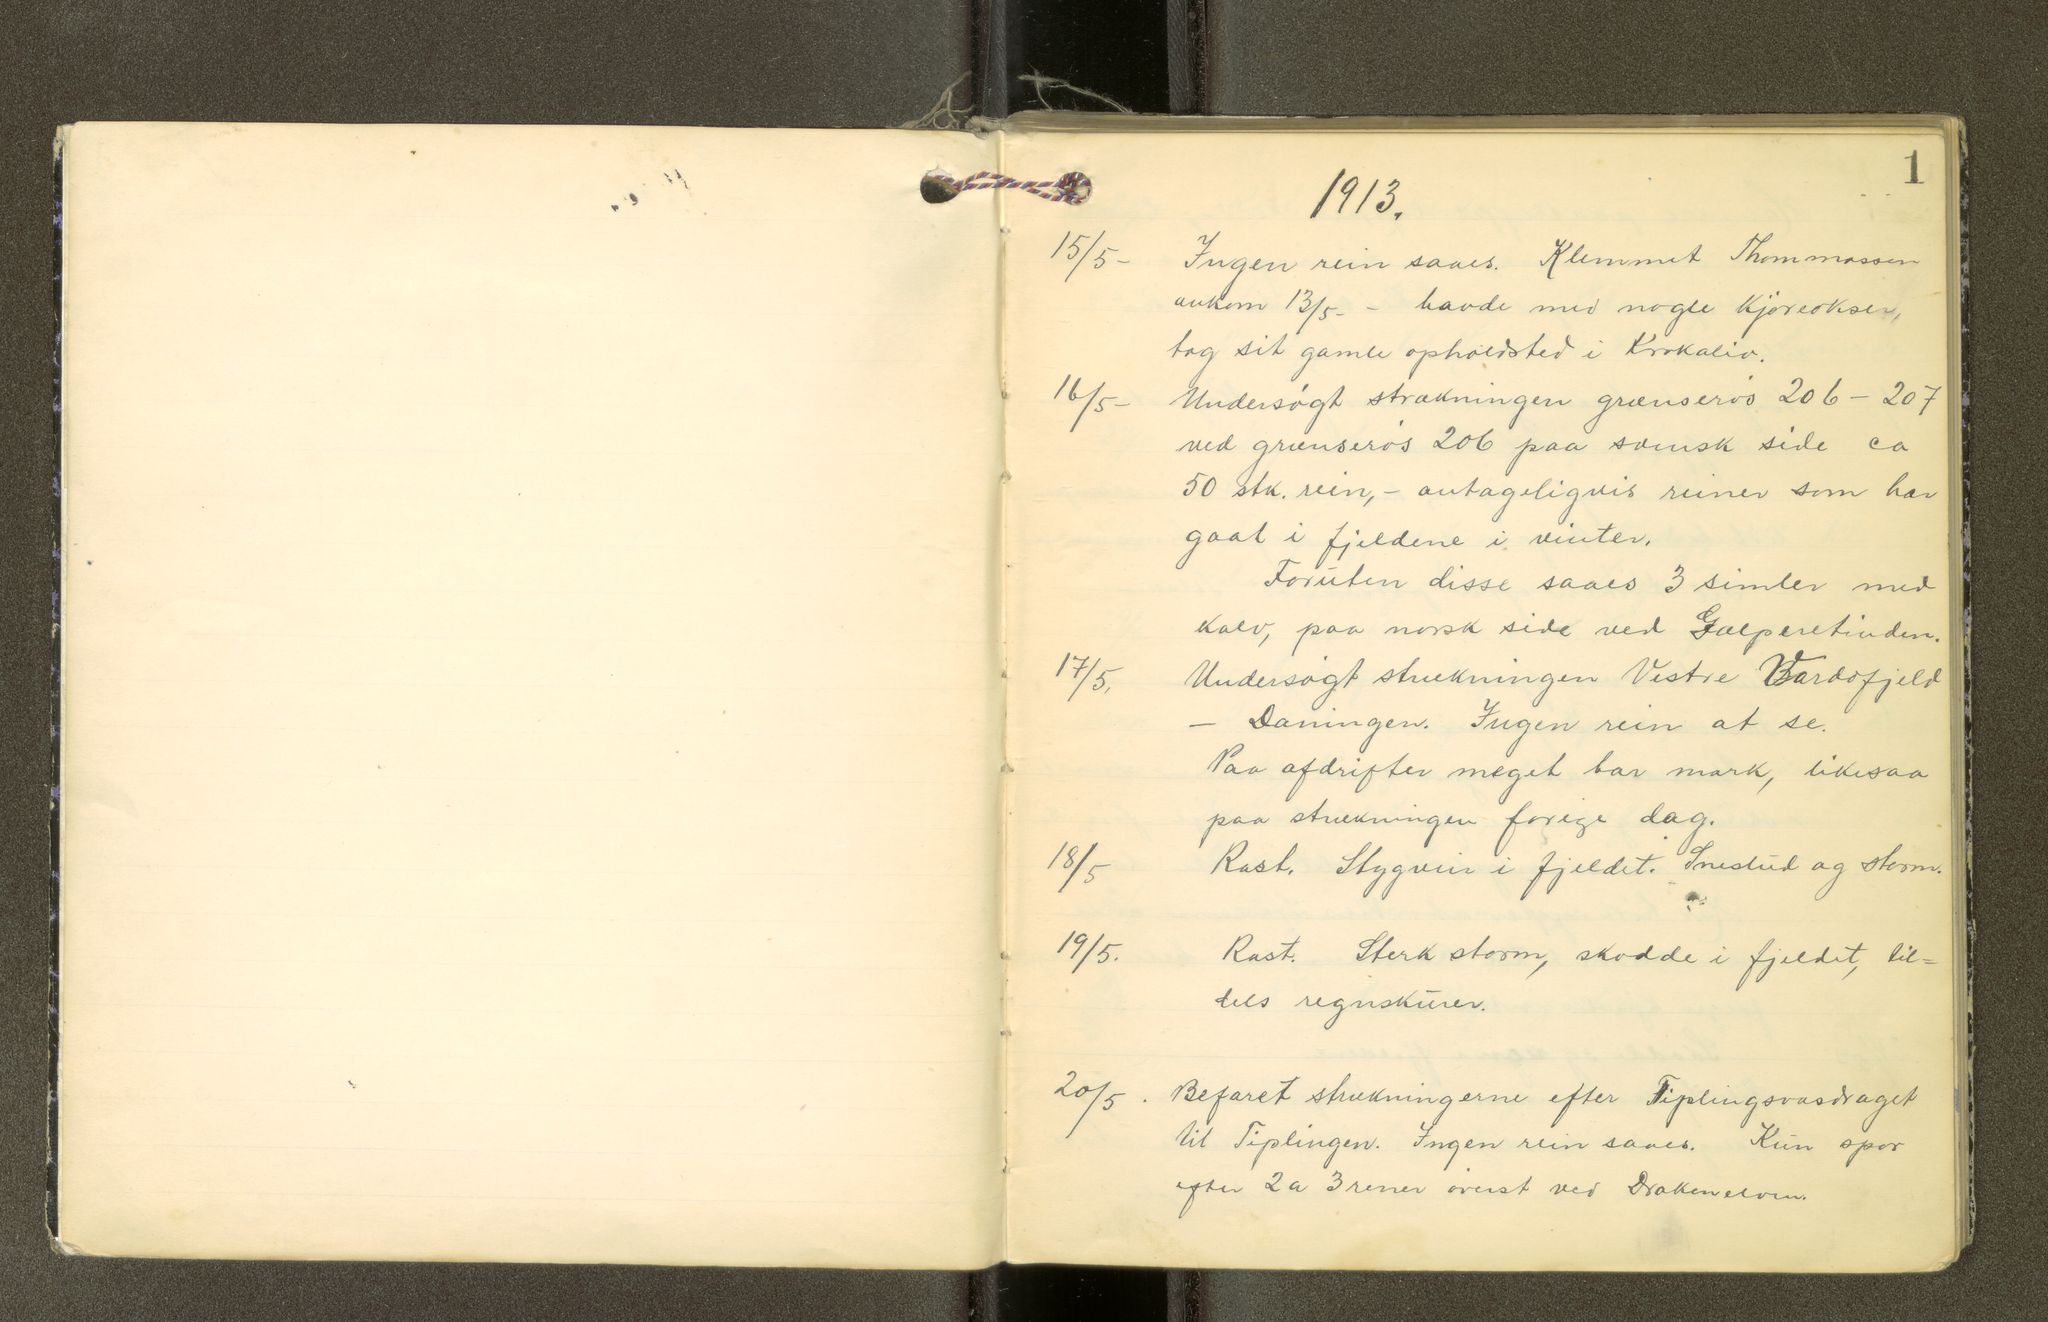 1
1913.
15/5- Ingen rein saaes. Klemmet Thommassen
ankom 13/5- - havde med nogle kjøreokser,
tog sit gamle opholdsted i Krokaliv.
16/5- Undersøgt strækningen grænserøs 206 - 207
ved grænserøs 206 paa svensk side ca
50 stk. rein, - antageligvis reiner som har
gaat i fjeldene i vinter.
Foruten disse saaes 3 simler med
kalv, paa norsk side ved Galperetinden.
17/5. Undersøgt strækningen Vestre Vardofjeld
- Daningen. Ingen rein at se.
Paa afdrifter meget bar mark, likesaa
paa strækningen forige dag.
18/5 Rast. Stygveir i fjeldet. Snestud og storm.
19/5. Rast. Sterk storm, skodde i fjeldet, til=
dels regnskurer.
20/5. Befaret strækningerne efter Tiplingsvasdraget
til Tiplingen. Ingen rein saaes. Kun spor
efter 2 a 3 rener øverst ved Drakenelven.